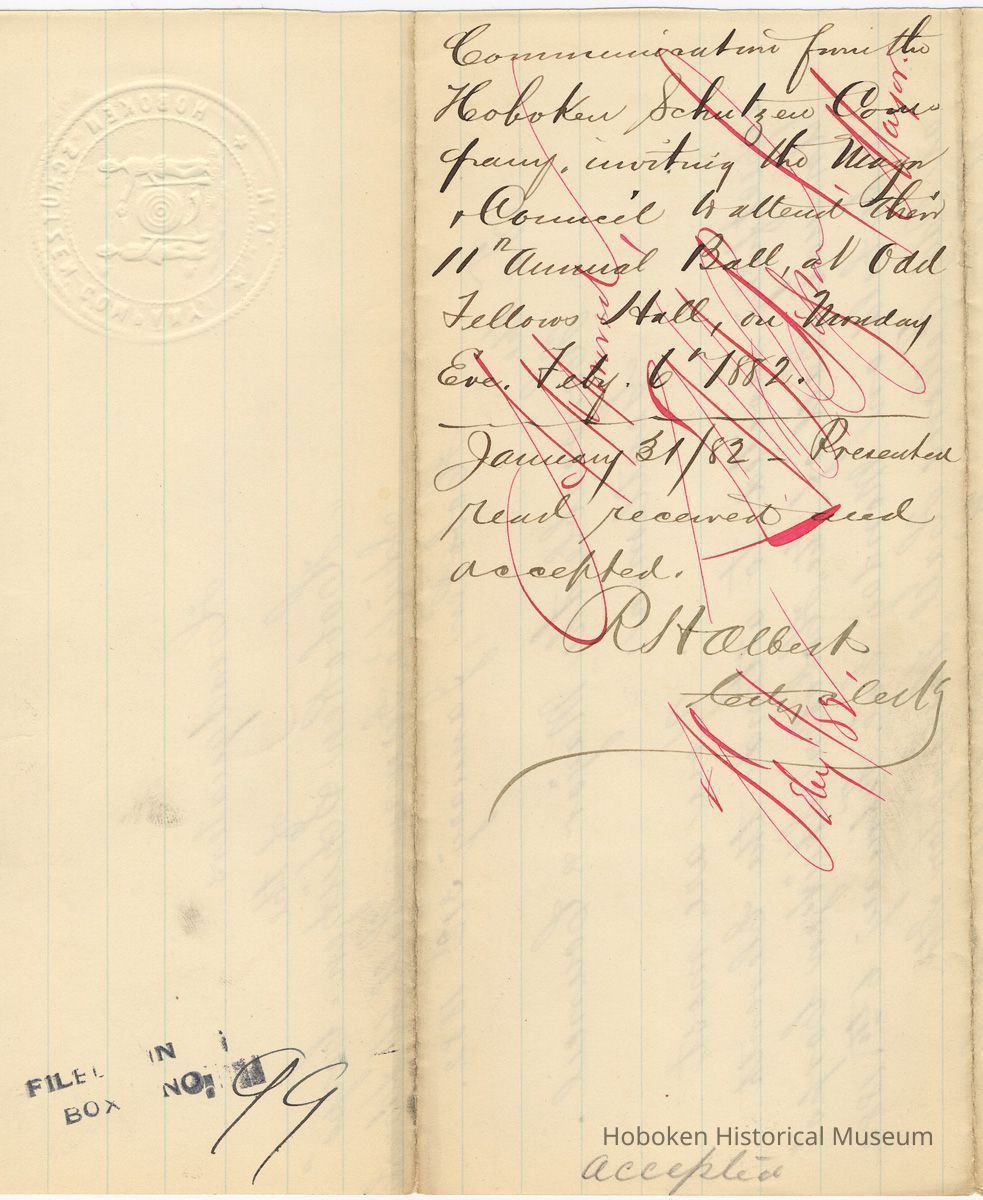 Communication from the
Hoboken Schutzen Com
pany, inviting the Mayor
& Council to attend their
11th Annual Ball, at Odd
Fellows Hall, on Monday
Eve. Feby. 6th 1882.
January 31/82 - Presented
read received and
accepted.
R H Alberts
City Clerk
Approved
Mayor.
Feby 1/82
HOBOKEN SCHUTZEN COMPANY
FILED IN
BOX NO.
99
Hoboken Historical Museum
accepted